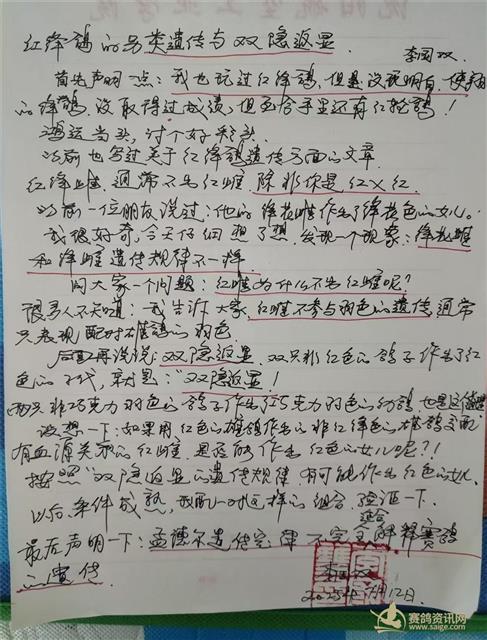 红绛鸽的另类遗传与双隐返显
李国双
首先声明一点：我也玩过红绛鸽，但是没玩明白，使翔
的绛鸽，没取得过成绩，但至今手里还有红轮鸽！
鸿运当头，讨个好彩头
以前也写过关于红绛鸽遗传方面的文章
红绛雌，通常不出红雌，除非你是红X红
以前一位朋友说过：他的绛花雌作出了绛花色的女儿。
我很好奇，今天仔细想了想，发现一个现象：绛花雌
和绛雌遗传规律不一样
问大家一个问题：红雌为什么不出红雌呢？
很多人不知道：我告诉大家，红雌不参与羽色的遗传，通常
只表现配对雄鸽的羽色
后面再说说：双隐返显，双只非红色的鸽子作出了红
色的下代，就是："双隐返显！
两只非巧克力羽色的鸽子作出了巧克力羽色的幼鸽，也是这个道理
设想一下：如果用红色的雄鸽作出的非红绛色的雄鸽交配
有血源关系的红雌，是否能作出红色的女儿呢？！
按照"双隐返显的遗传规律，有可能作出红色的女儿
以后，条件成熟，我配一对这样的组合，验证一下
最后声明一下：孟德尔遗传定律不完全适合解释赛鸽
的遗传
李国双
2025年 月12日
赛鸽资讯网
www.saige.com